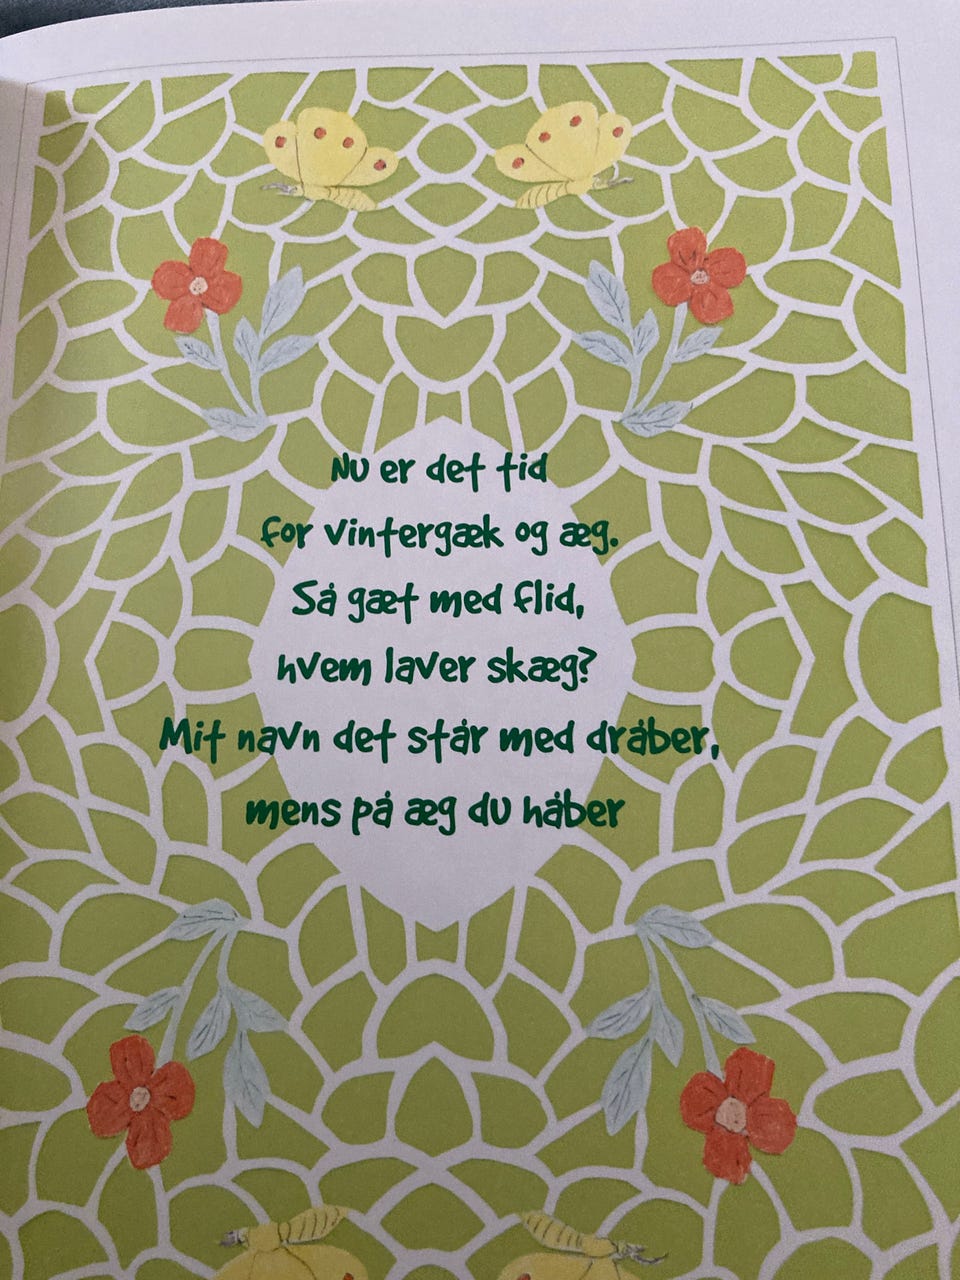 Nu er det tid
for vintergæk og æg.
Så gæt med flid,
hvem laver skæg?
Mit navn det står med dråber,
mens på æg du håber